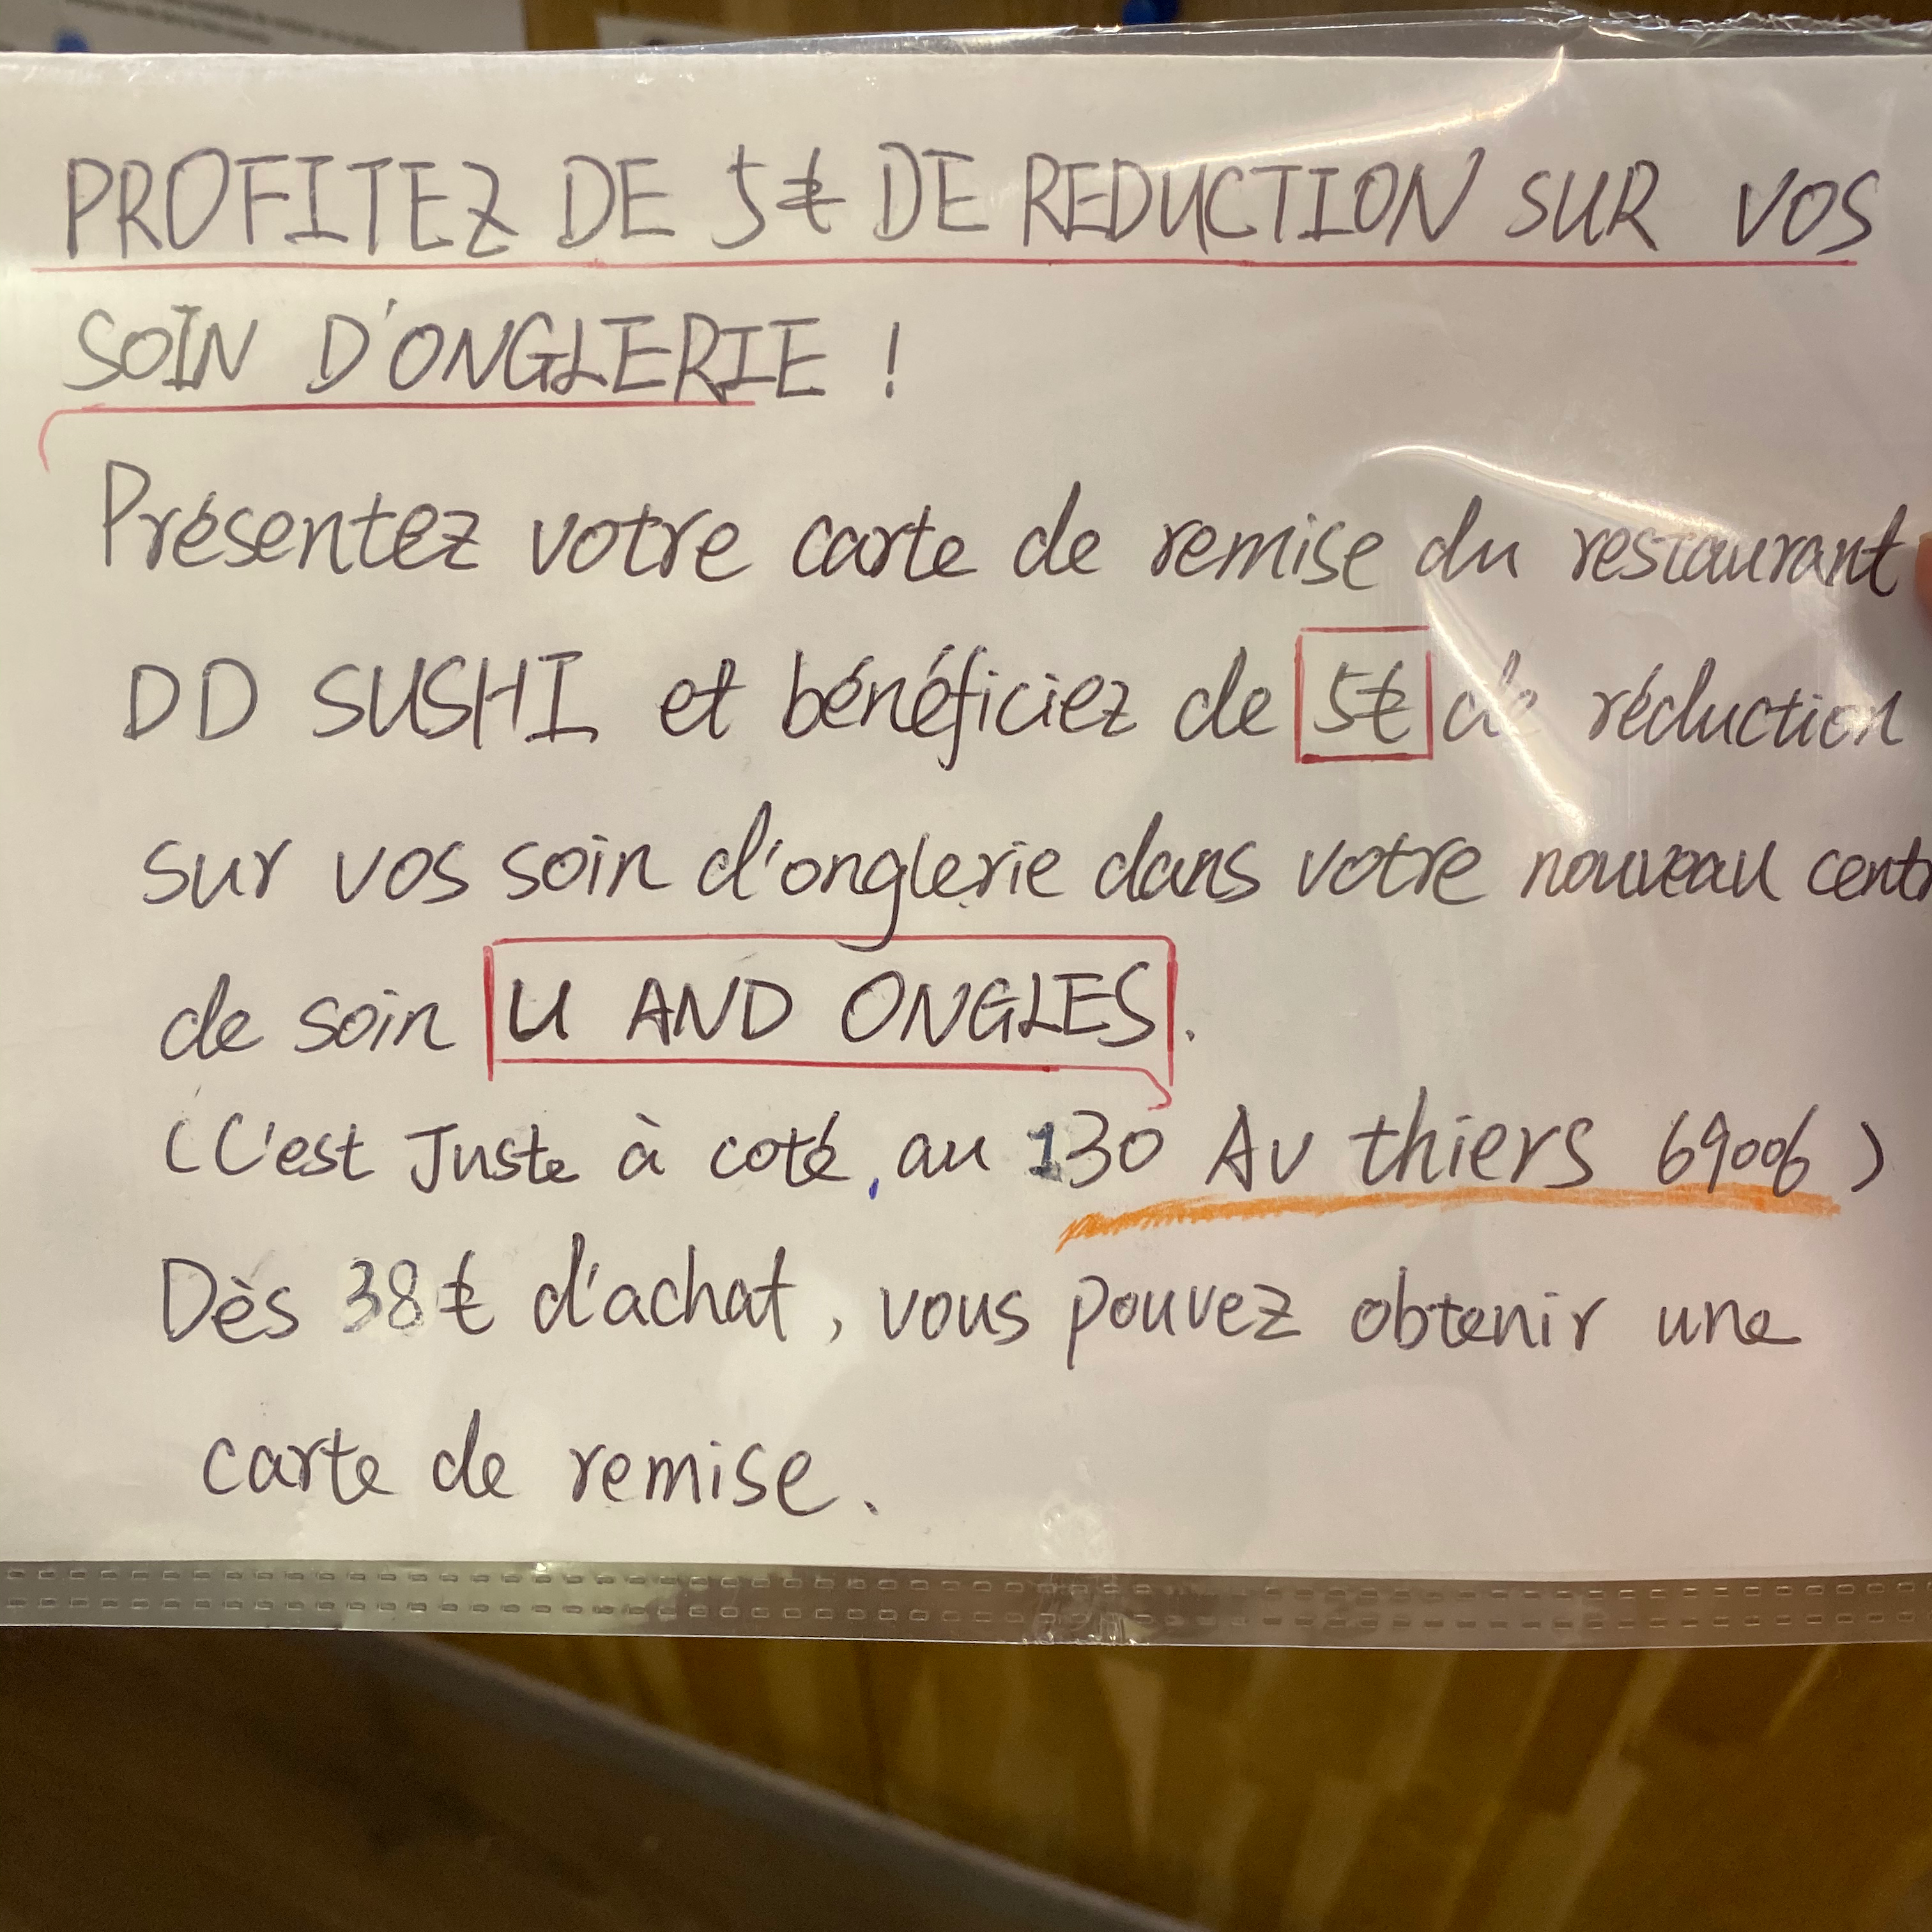 PROFITEZ DE 5€ DE REDUCTION SUR VOS
SOIN D'ONGLERIE !
Présentez votre carte de remise du restaurant
DD SUSHI et bénéficiez de 5€ de réduction
sur vos soin d'onglerie dans votre nouveau centr
de soin U AND ONGLES.
(C'est Juste à coté, au 130 Av thiers 69006)
Dès 38€ d'achat, vous pouvez obtenir une
carte de remise.